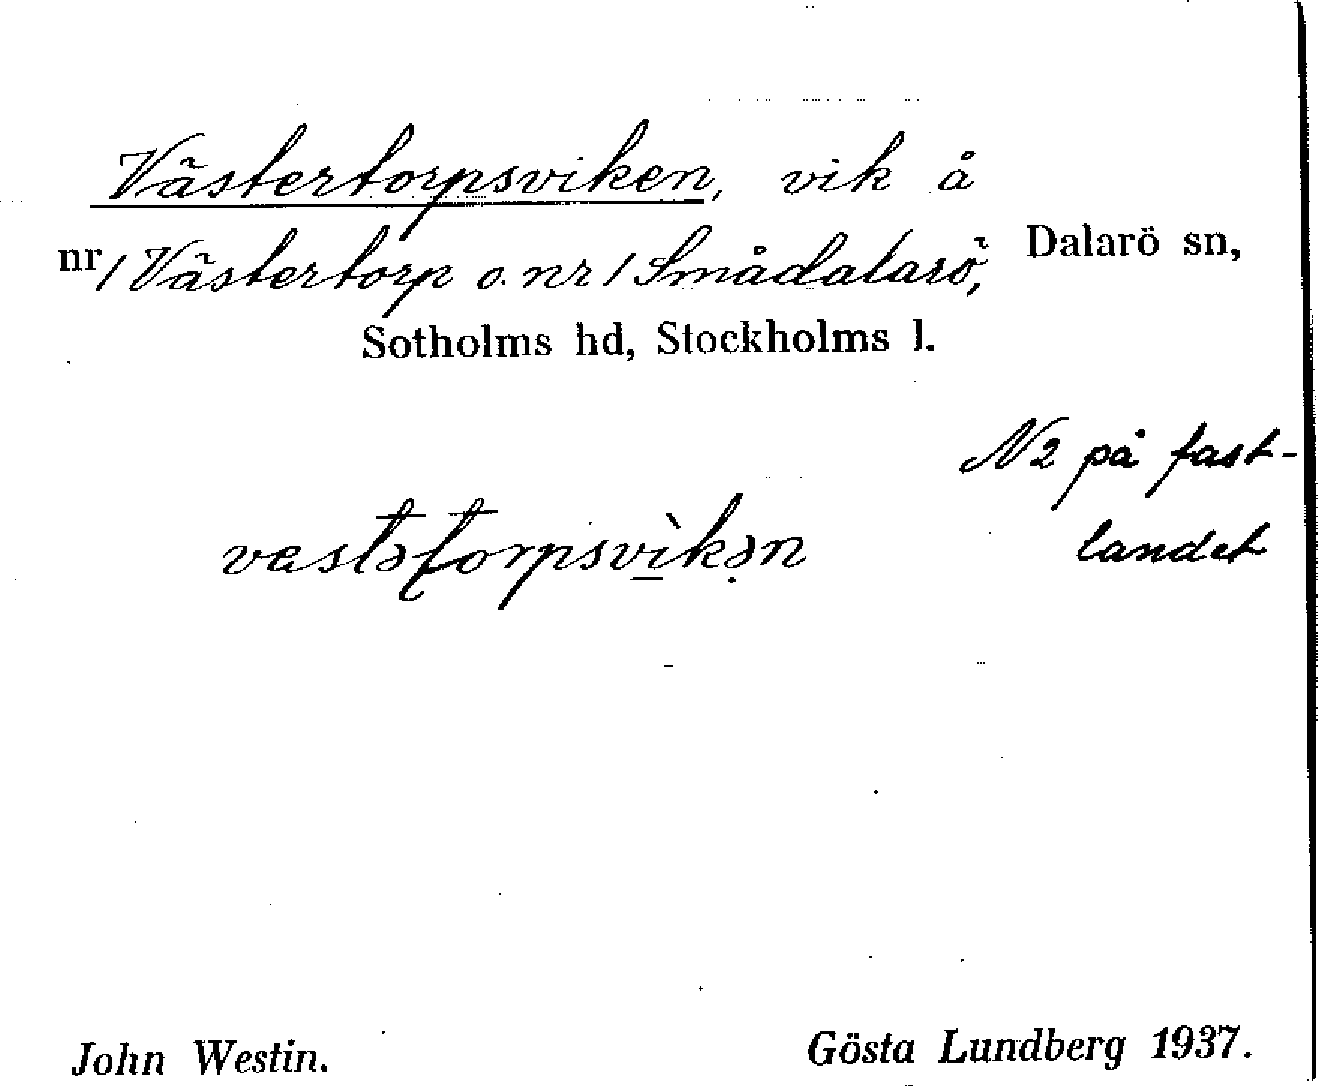 Västertorpsviken, vik å
nr 1 Västertorp o. nr 1 Smådalarö, Dalarö sn,
Sotholms hd, Stockholms l.
N2 på fast-
landet
vastətorpsvìkən
John Westin. Gösta Lundberg 1937.